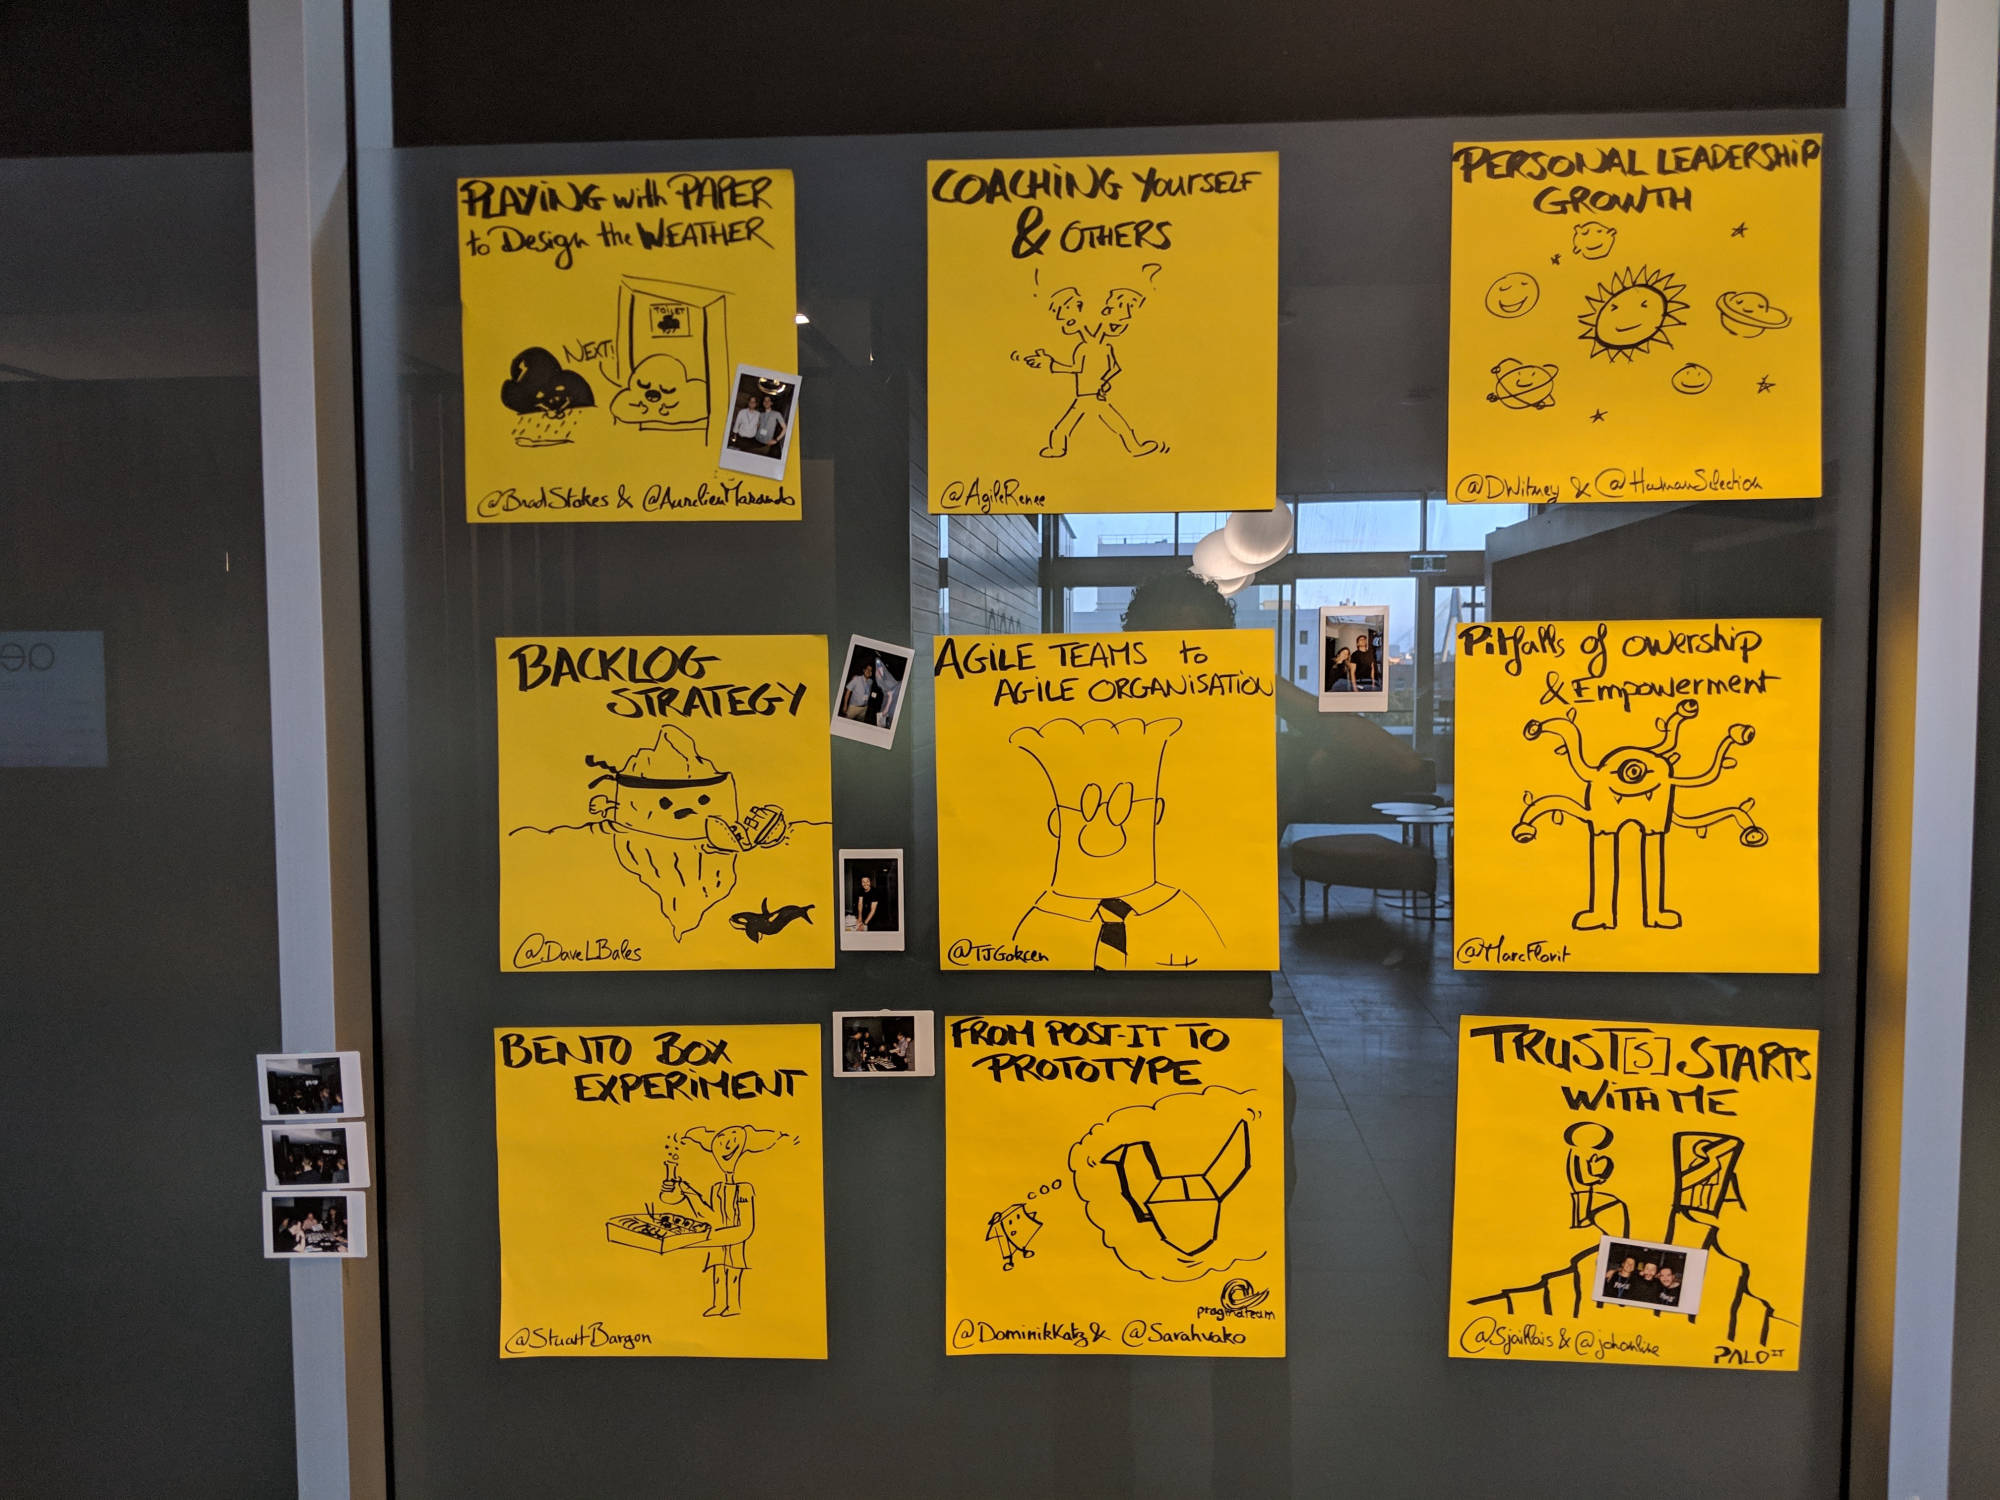 PLAYING with PAPER
to Design the WEATHER
TOILET
NEXT!
@BradStokes & @AurelienMarando
COACHING YOURSELF
& OTHERS
! ?
@AgileRenee
PERSONAL LEADERSHIP
GROWTH
@DWitney & @HumanSelection
BACKLOG
STRATEGY
@DaveLBales
AGILE TEAMS to
AGILE ORGANISATION
@TJGokcen
Pitfalls of owership
& Empowerment
@MarcFlorit
BENTO BOX
EXPERIMENT
@StuartBargon
FROM POST-IT TO
PROTOTYPE
pragmateam
@DominikKatz & @Sarahvako
TRUST[S] STARTS
WITH ME
@Sjaillais & @johanline
PALO IT